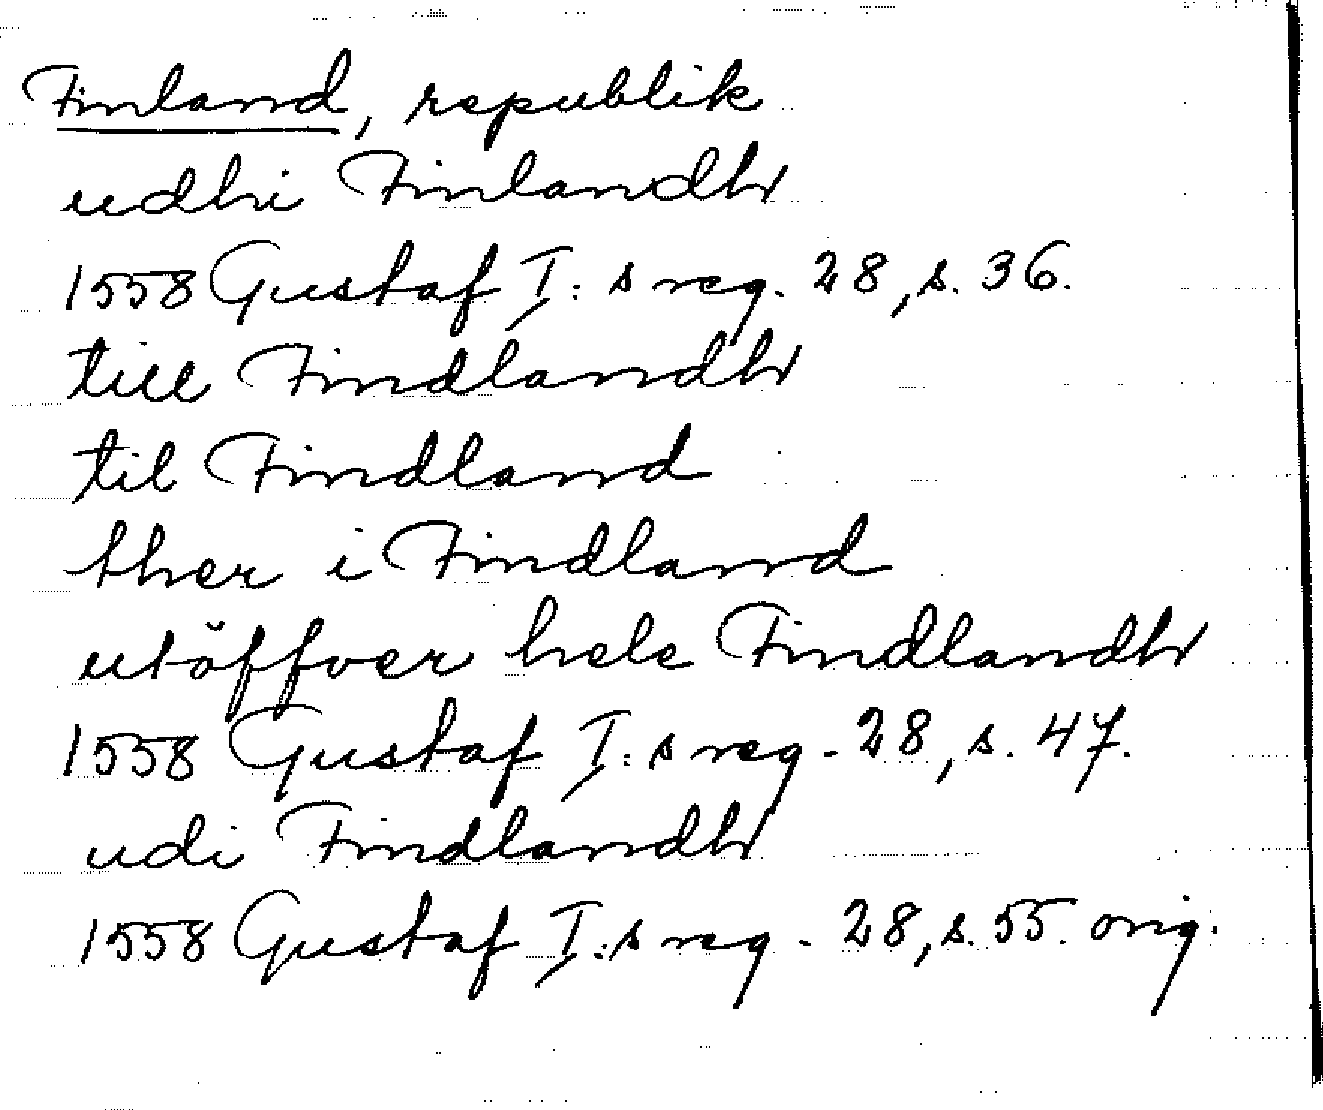 Finland, republik
udhi Finlandh
1558 Gustaf I:s reg. 28, s. 36.
till Findlandh
til Findland
ther i Findland
utöffver hele Findlandh
1558 Gustaf I:s reg. 28, s. 47.
udi Findlandh
1558 Gustaf I:s reg. 28, s. 55. orig.